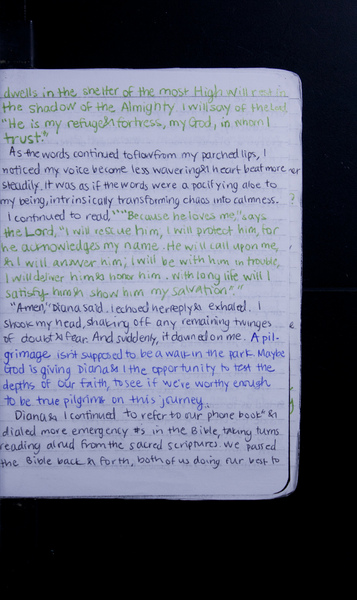 dwells in the shelter of the most High will rest in
the shadow of the Almighty. I will say of the Lord
"He is my refuge & fortress, my God, in whom I
trust."
As the words continued to flow from my parched lips, I
noticed my voice become less wavering & heart beat more
steadily. It was as if the words were a pacifying aloe to
my being, intrinsically transforming chaos into calmness.
I continued to read, ""Because he loves me," says
the Lord, "I will rescue him, I will protect him, for
he acknowledges my name. He will call upon me,
& I will answer him; I will be with him in trouble,
I will deliver him & honor him. With long life will I
satisfy him & show him my salvation"."
"Amen," Diana said. I echoed her reply & exhaled. I
shook my head, shaking off any remaining twinges
of doubt & fear. And suddenly, it dawned on me. A pil-
grimage isn't supposed to be a walk in the park. Maybe
God is giving Diana & I the opportunity to test the
depths of our faith, to see if we're worthy enough
to be true pilgrims on this journey.
Diana & I continued to refer to our phone book" &
dialed more emergency #s in the Bible, taking turns
reading aloud from the sacred scriptures. We passed
the Bible back & forth, both of us doing our best to